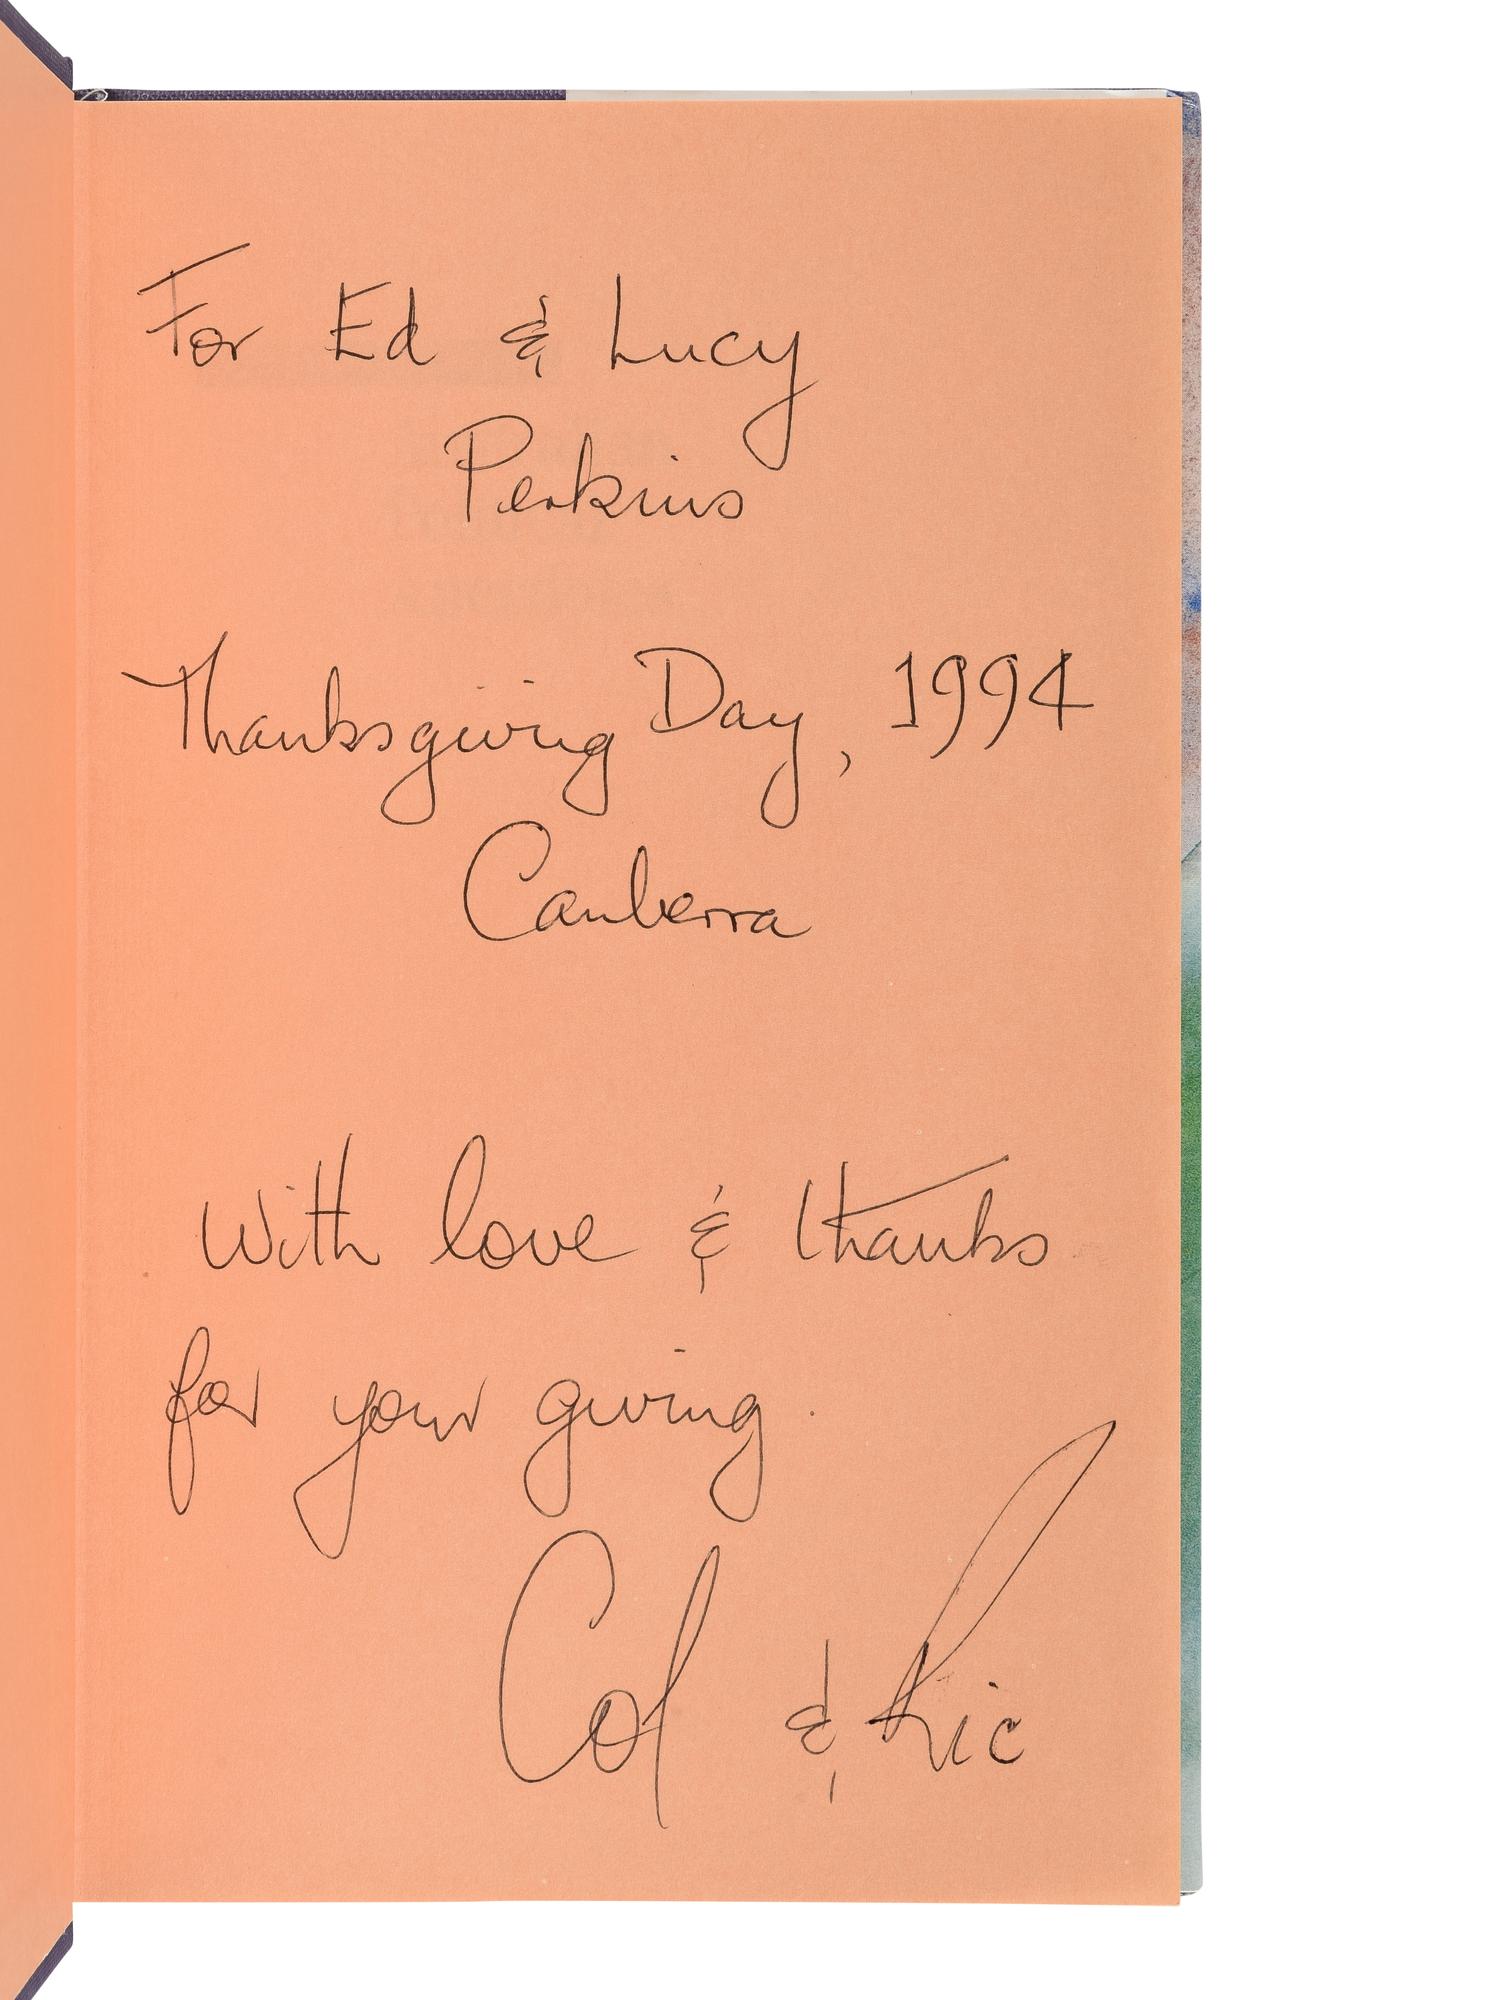 For Ed & Lucy
Perkins
Thanksgiving Day, 1994
Canberra
With love & thanks
for your giving.
Col & Ric